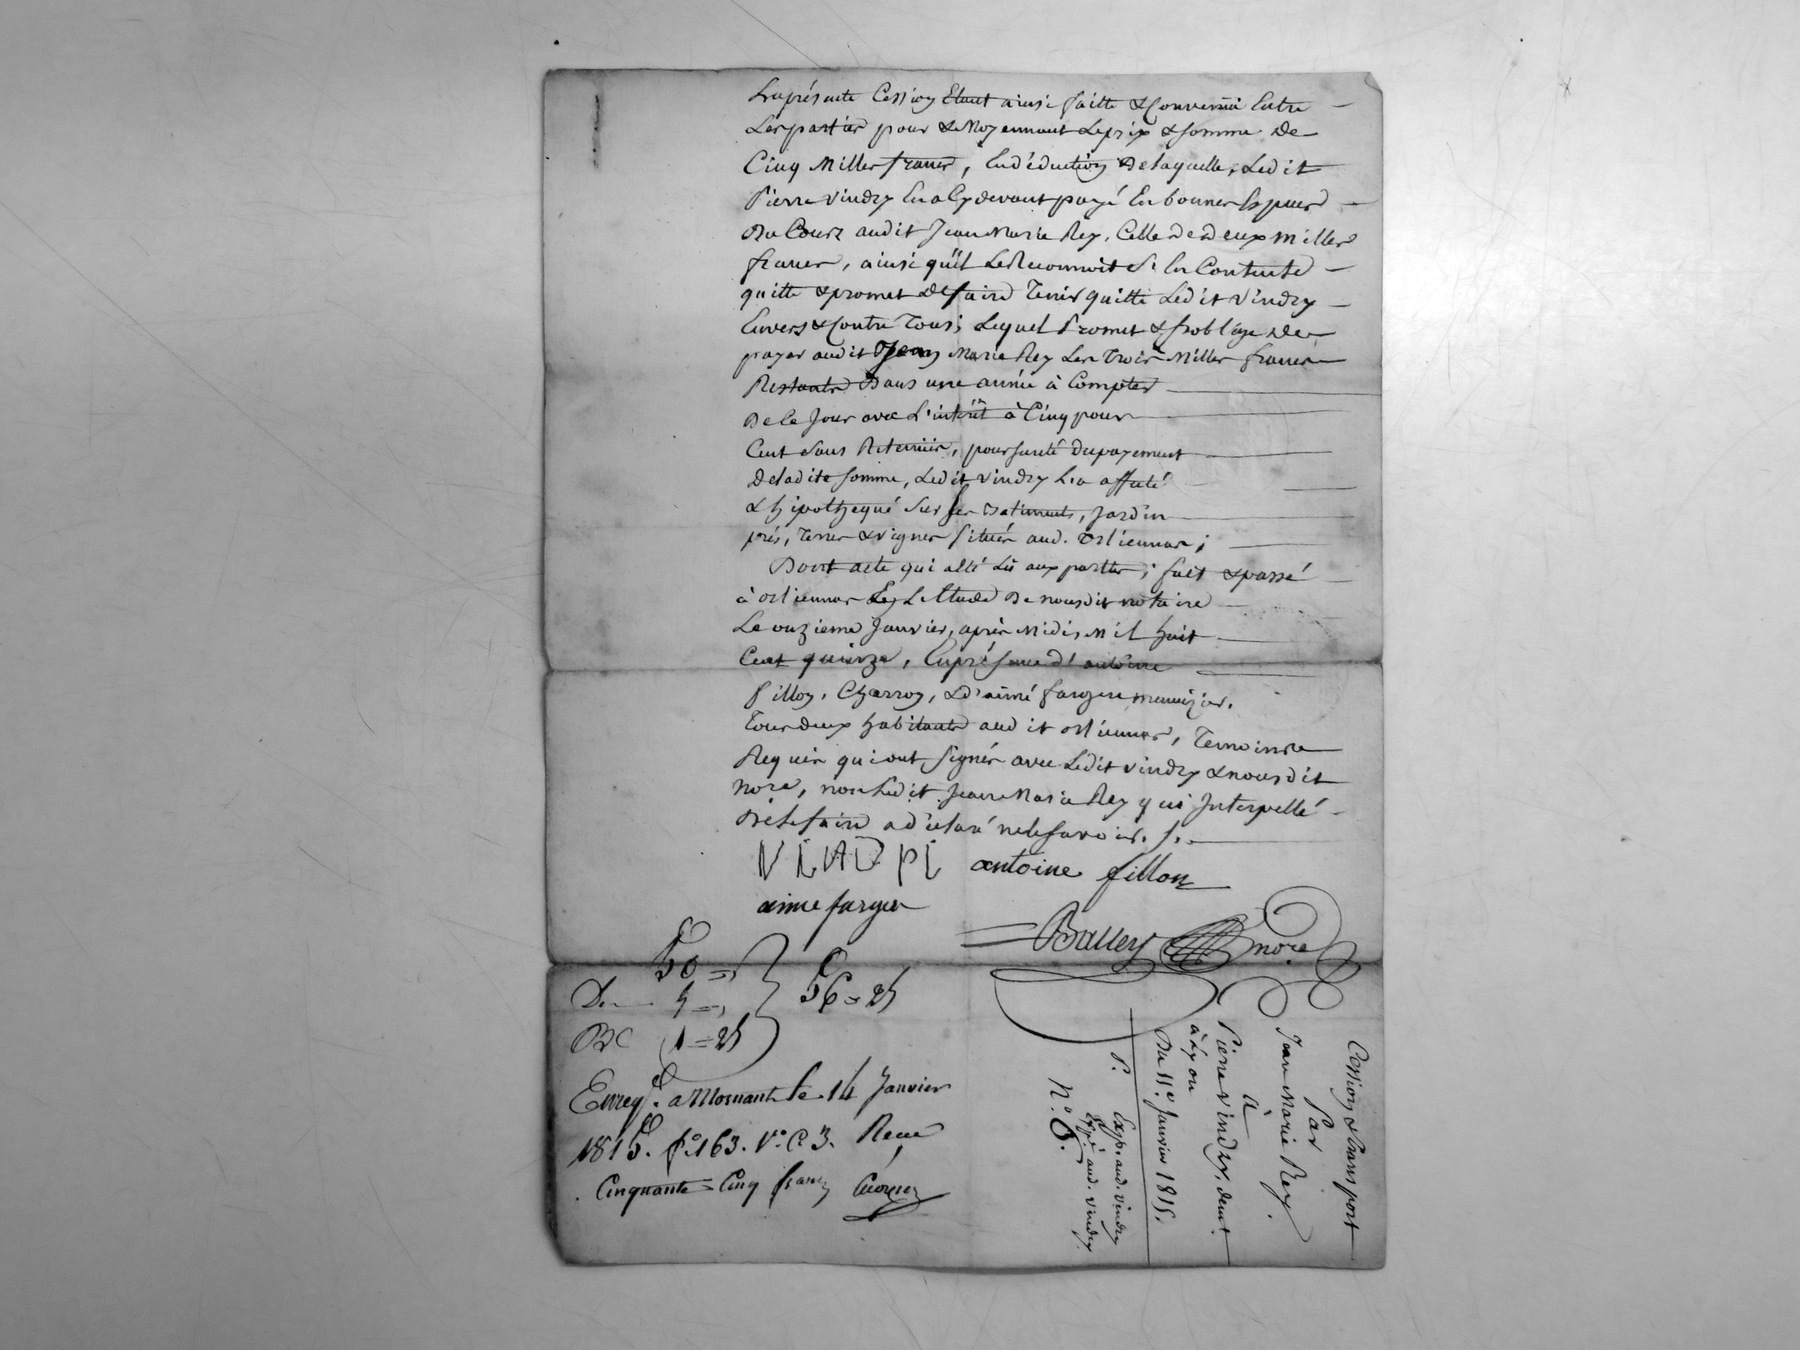 La présente Cession Etant ainsi faitte & Convenüe Entre
Les parties pour & Moyennant Le prix & somme De
Cinq Milles francs, En déduction De laquelle, Ledit
Pierre vindry En a Cy devant payé En bonnes Espèces
Du Cours audit Jean Marie Rey, Celle De Deux Milles
francs, ainsi qu'il Le Reconnoit S'en Contente
quitte & promet De faire Tenir quitte Ledit Vindry
Envers & Contre Tous; Lequel Promet & s'oblige De
payer audit Jean Marie Rey Les Trois Milles francs
Restants Dans une année à Compter
De Ce Jour avec L'intérêt à Cinq pour
Cent Sans Retenüe, pour sureté Du payement
De ladite somme, Ledit Vindry L'a affecté
& hipothequé Sur Ses Batiments, Jardin
prés, Terres & Vignes Situés aud. Orliennas;
Dont acte qui a été Lû aux parties; fait & passé
à Orliennas En L'Etude De nousdit notaire
Le onzieme Janvier, après Midi, Mil huit
Cent quinze, En présence d'antoine
fillon, Charron, & d'aimé farges menuizier,
Tous deux habitants audit Orliennas, Temoins
Requis qui ont Signés avec Ledit Vindry & nousdit
nore, non Ledit Jean Marie Rey qui Interpellé
De le faire a déclaré ne le Savoir. /.
antoine fillon
aimé farges
Balley nore
50 = "
D.—— 5 = "
56 = 25
BC 1 = 25
Enregé. a Mornant le 14 Janvier
1815. fo. 163. Vo. C 3. Recu
Cinquante = Cinq francs
Cession & Transport
Par
Jean Marie Rey.
à
Pierre Vindry, demt.
à Lyon
Du 11e. Janvier 1815.
P.
Exp. aud. Vindry
Expé. aud. Vindry.
No. 8.